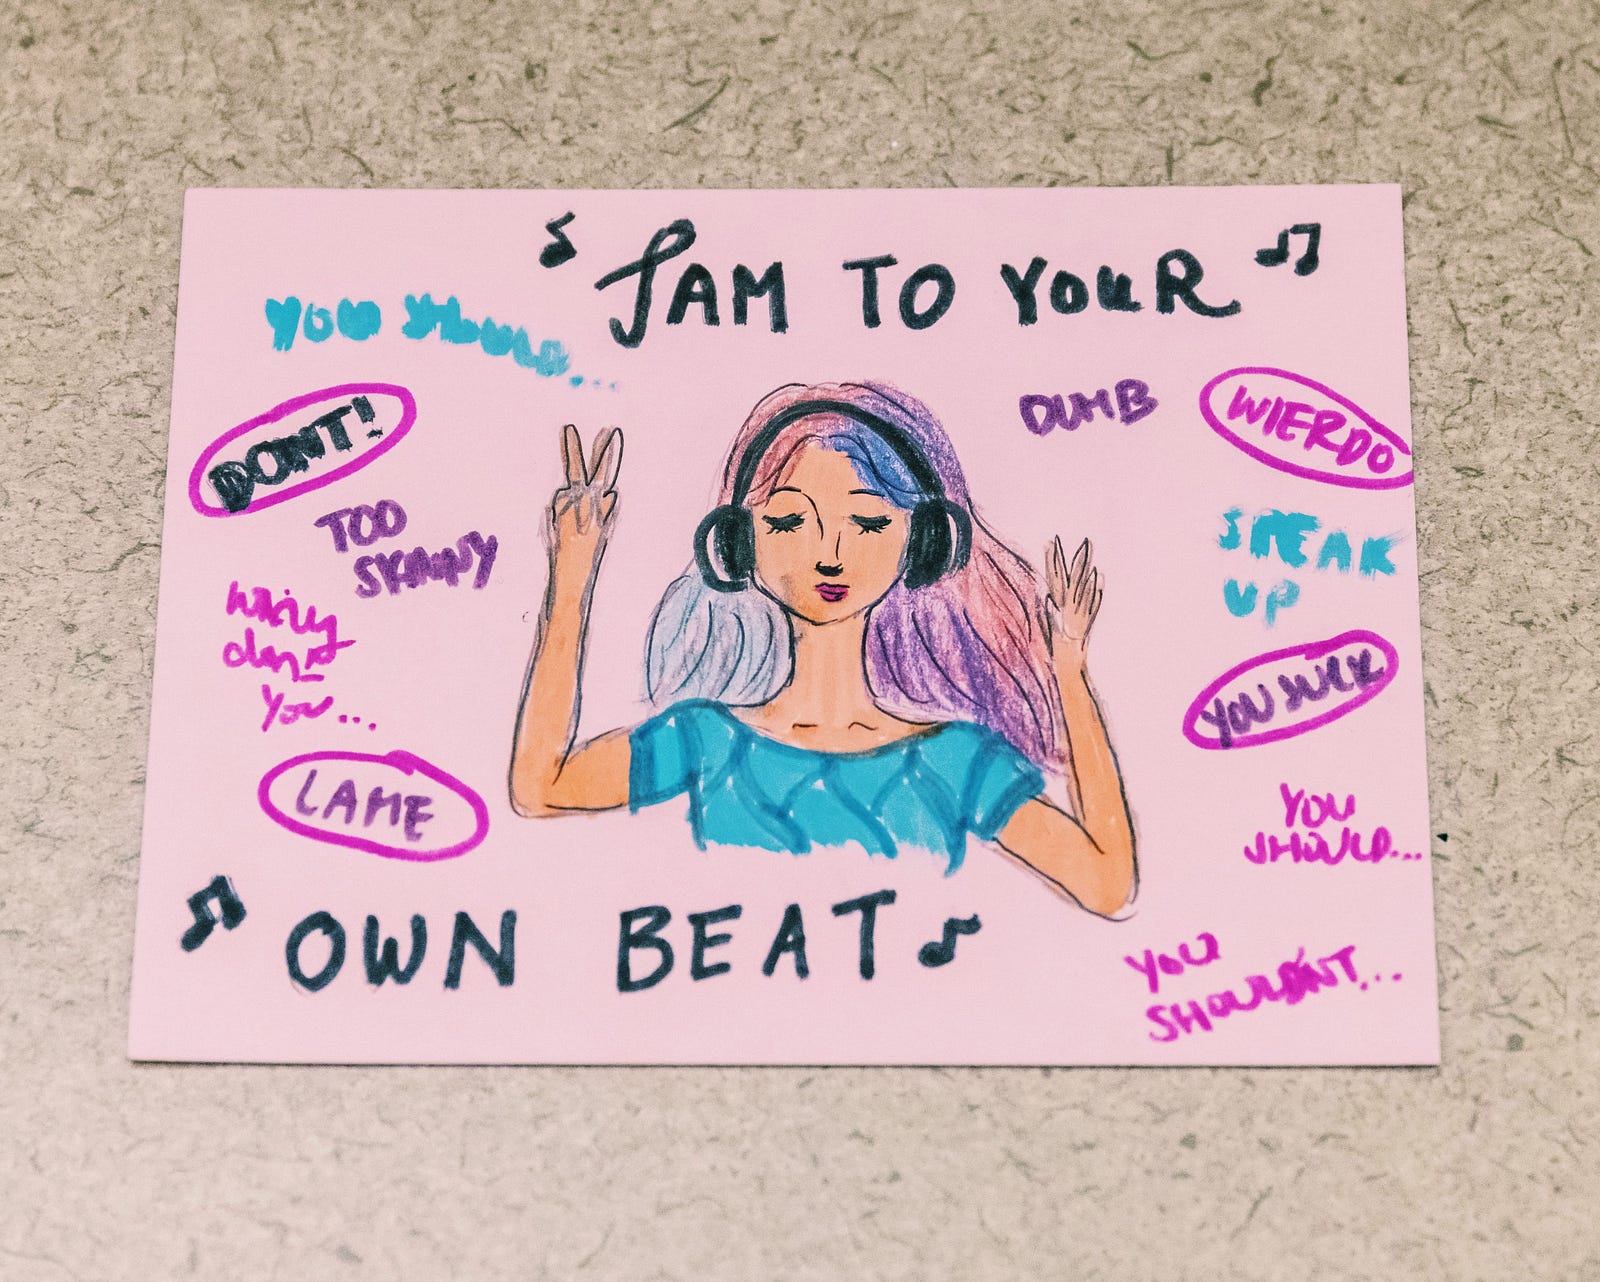 JAM TO YOUR
YOU SHOULD...
DONT!
TOO
SKINNY
WHY
don't
You...
LAME
DUMB
WIERDO
SPEAK
UP
YOU SUCK
YOU
SHOULD...
YOU
SHOULDN'T...
OWN BEAT